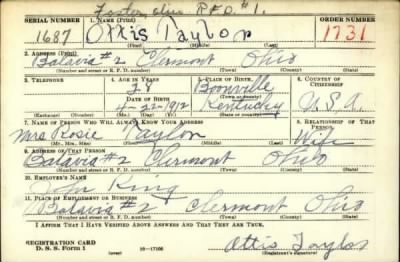 Foster, Ohio R.F.D. #1.
SERIAL NUMBER 1. NAME (Print) ORDER NUMBER
1687 Ottis Taylor 1731
(First) (Middle) (Last)
2. ADDRESS (Print)
Batavia #2 Clermont Ohio
(Number and street or R. F. D. number) (Town) (County) (State)
3. TELEPHONE 4. AGE IN YEARS 5. PLACE OF BIRTH 6. COUNTRY OF CITIZENSHIP
28 Boonville
DATE OF BIRTH (Town or county)
4-22-1912 Kentucky U.S.A.
(Exchange) (No.) (Mo.) (Day) (Yr.) (State or country)
7. NAME OF PERSON WHO WILL ALWAYS KNOW YOUR ADDRESS 8. RELATIONSHIP OF THAT PERSON
Mrs Rosie Taylor Wife
(Mr., Mrs., Miss) (First) (Middle) (Last)
9. ADDRESS OF THAT PERSON
Batavia #2 Clermont Ohio
(Number and street or R. F. D. number) (Town) (County) (State)
10. EMPLOYER'S NAME
John King
11. PLACE OF EMPLOYMENT OR BUSINESS
Batavia #2 Clermont Ohio
(Number and street or R. F. D. number) (Town) (County) (State)
I AFFIRM THAT I HAVE VERIFIED ABOVE ANSWERS AND THAT THEY ARE TRUE.
REGISTRATION CARD
D. S. S. Form 1 16-17105 Ottis Taylor
(Registrant's signature)